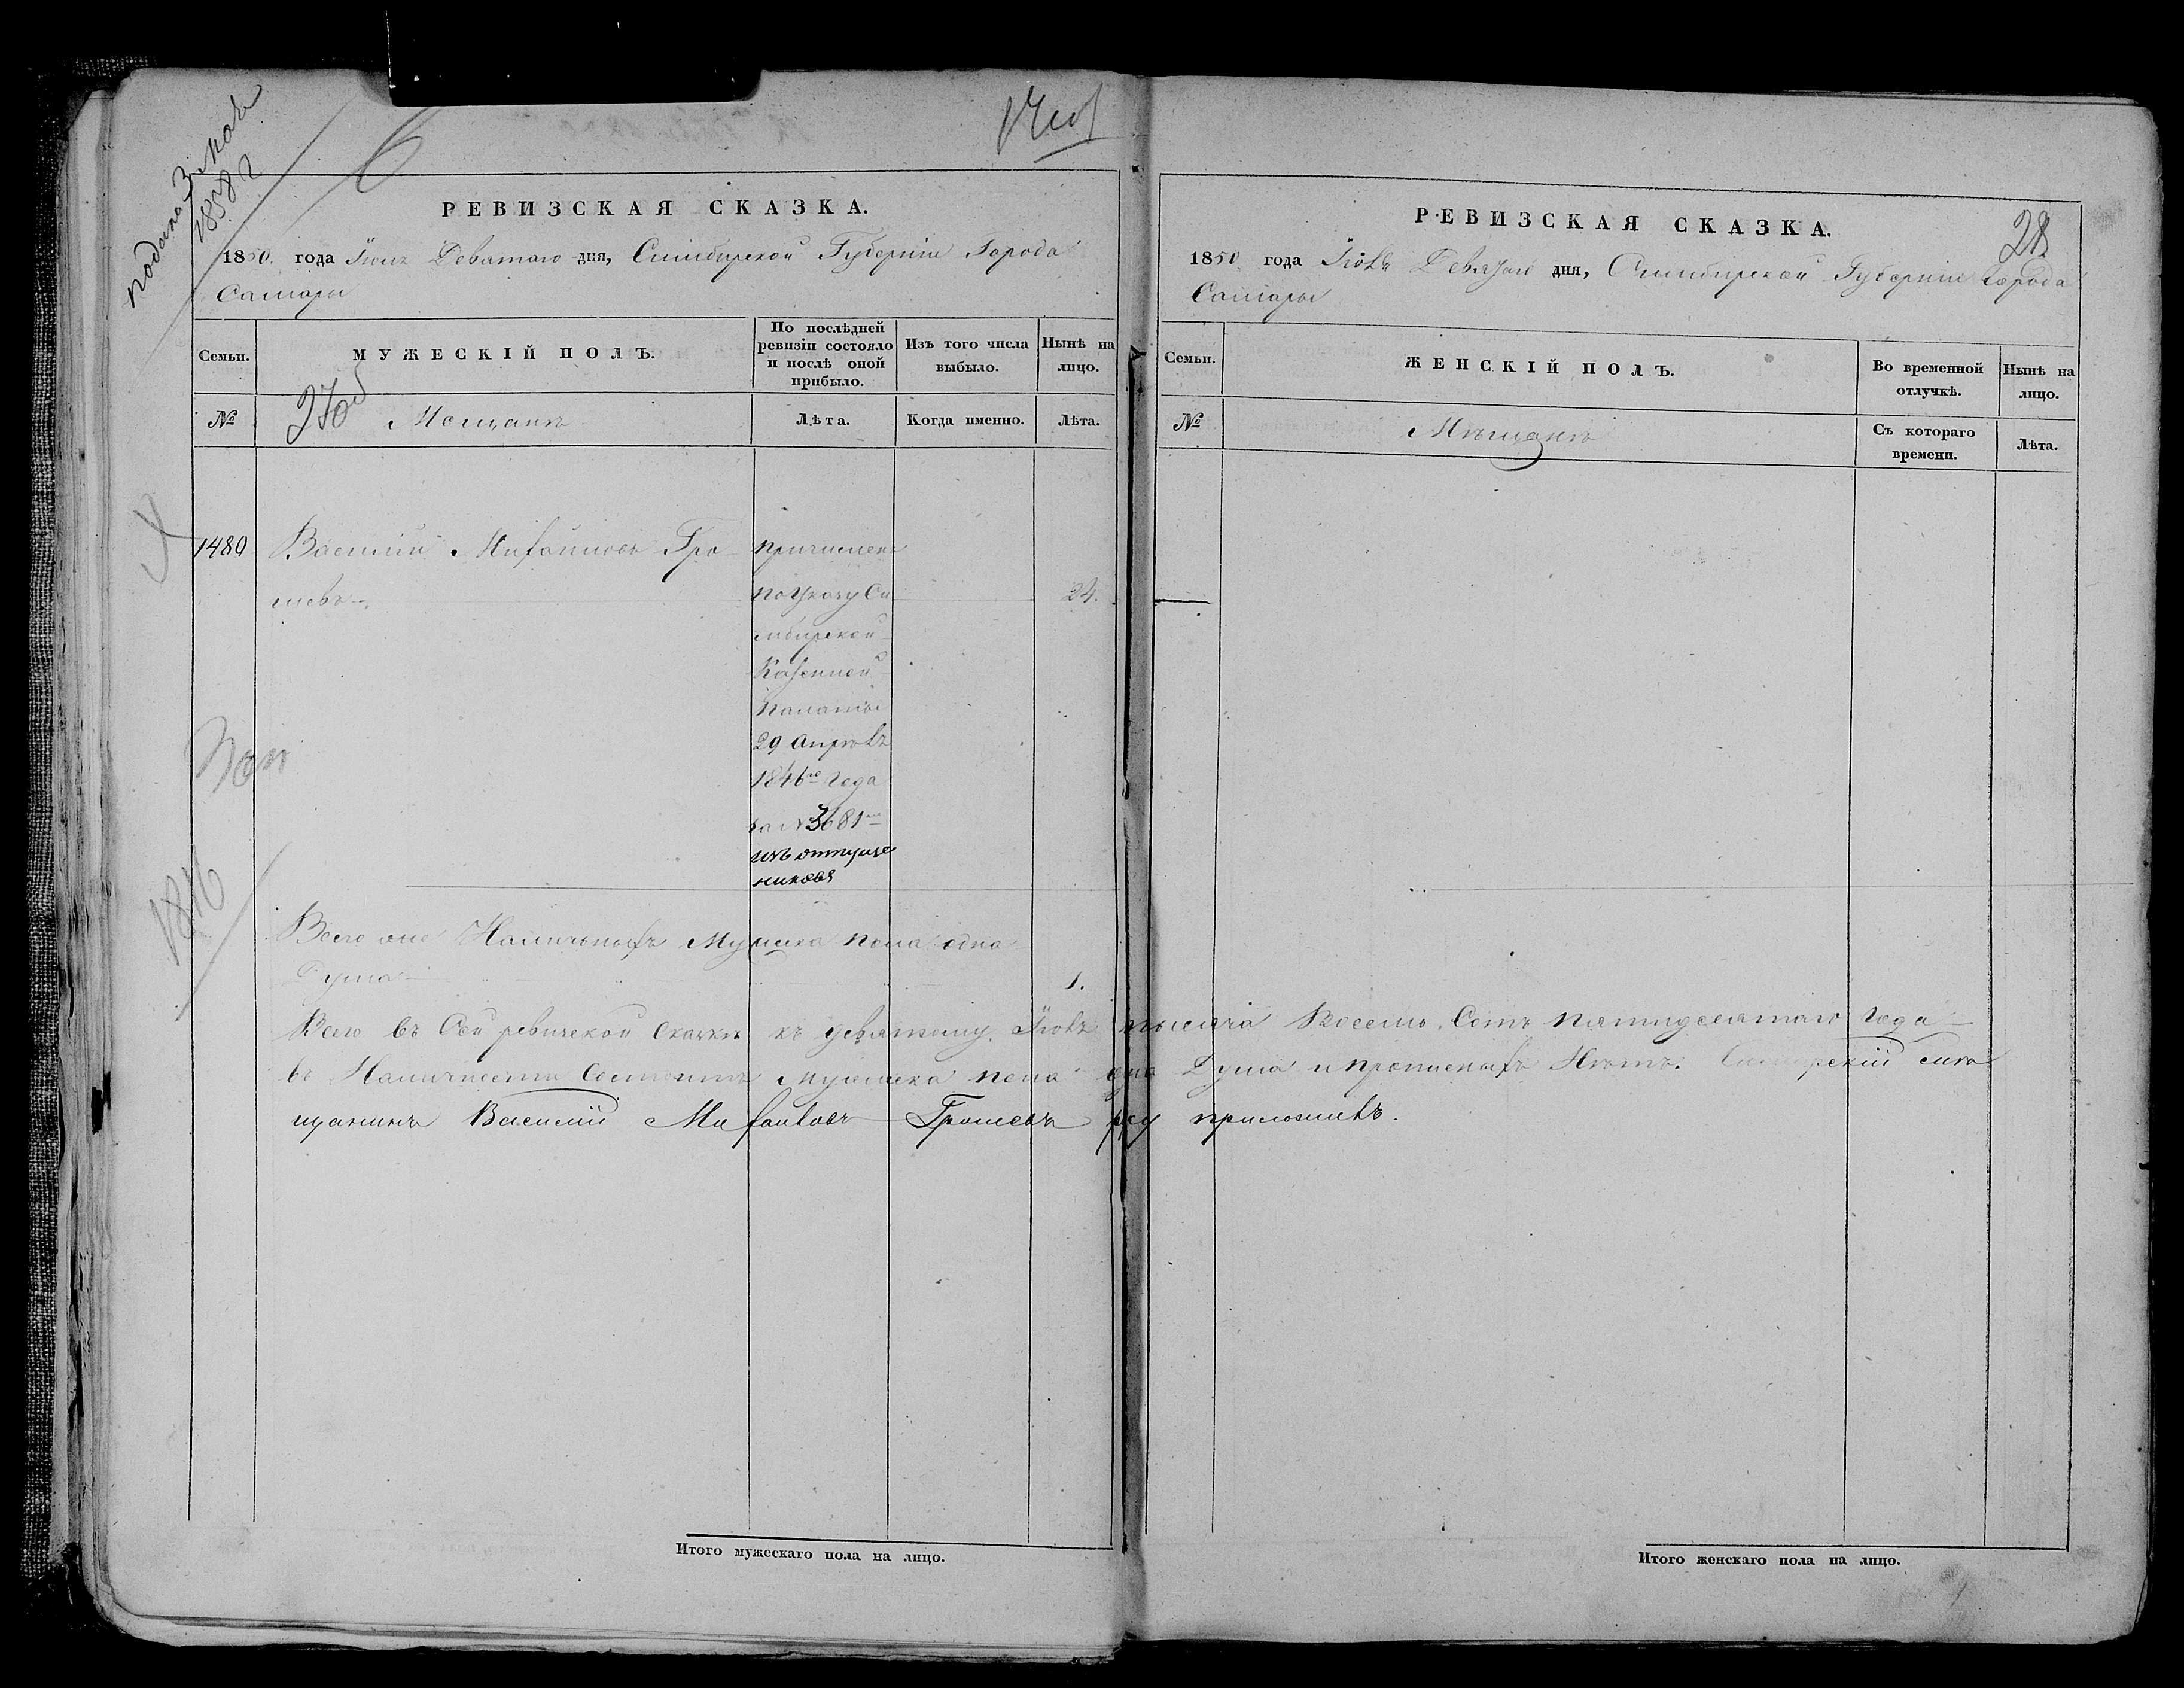 подана 3 Мая
1858 г
6
РЕВИЗСКАЯ СКАЗКА.
1850. года Іюля Деватаго дня, Симбирской Губерніи Города
Самары
Семьи.
МУЖЕСКІЙ ПОЛЪ.
По послѣдней
ревизіи состояло
и послѣ оной
прибыло.
Изъ того числа
выбыло.
Нынѣ на
лицо.
№
Мещанъ
Лѣта.
Когда именно.
Лѣта.
1480
Василий Михайловъ Гро
шевъ
24.
причисленъ
по Указу Си
мбирской
Казенной
Палаты
29 Апрѣля
1846го года
за № 3681мъ
изъ отпущен
никовъ
1846
Всего Наличныхъ Мужеска пола одна
Душа
1.
Всего въ Сей ревизской Сказкѣ къ девятому Іюля тысяча Восемь Сотъ пятидесятаго года
въ Наличности Состоитъ мужеска пола одна Душа и прописныхъ Нѣтъ. Самарский мѣ
щанинъ Василий Михайловъ Грошевъ руку приложилъ.
Итого мужескаго пола на лицо.
28
РЕВИЗСКАЯ СКАЗКА.
1850 года Іюля Девятаго дня, Симбирской Губерніи города
Самары
Семьи.
ЖЕНСКІЙ ПОЛЪ.
Во временной
отлучкѣ.
Нынѣ на
лицо.
№
Мѣщанъ
Съ котораго
времени.
Лѣта.
Итого женскаго пола на лицо.